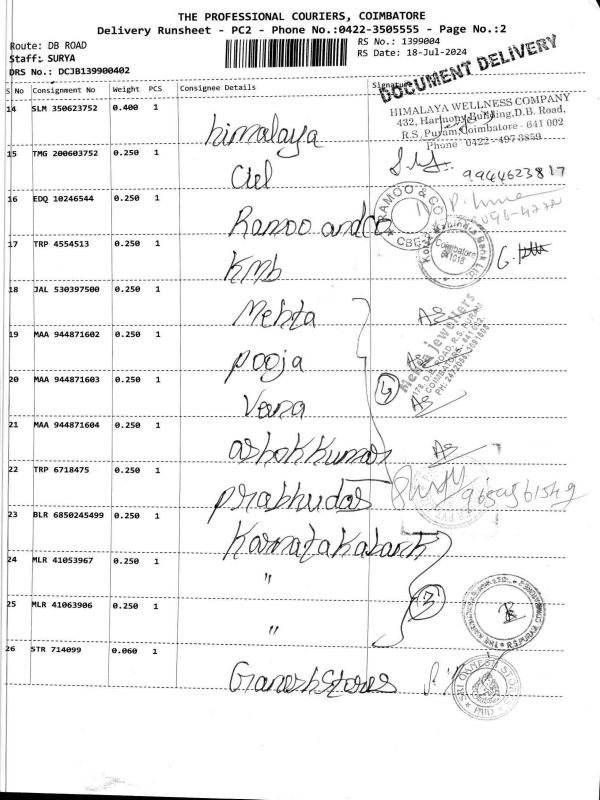 THE PROFESSIONAL COURIERS, COIMBATORE
Delivery Runsheet - PC2 - Phone No.:0422-3505555 - Page No.:2
Route: DB ROAD
RS No.: 1399004
Staff: SURYA
RS Date: 18-Jul-2024
DRS No.: DCJB139900402
DOCUMENT DELIVERY
S No Consignment No Weight PCS Consignee Details Signature
14 SLM 350623752 0.400 1 himalaya
HIMALAYA WELLNESS COMPANY
432, Harmony Building, D.B. Road,
R.S. Puram, Coimbatore - 641 002
Phone 0422-4973859
15 TMG 200603752 0.250 1 Ciel 9944623817
16 EDQ 10246544 0.250 1 Ramoo and co
RAMOO & CO
CBE-2
17 TRP 4554513 0.250 1 kmb
Kotak Mahindra Bank Ltd
Coimbatore
641018
18 JAL 530397500 0.250 1 Mehta AS
19 MAA 944871602 0.250 1 pooja AS
Mehta jewellers
D.B. ROAD, R.S. PURAM
COIMBATORE - 641 002
20 MAA 944871603 0.250 1 Veena AS
4
21 MAA 944871604 0.250 1 ashok kumar AS
22 TRP 6718475 0.250 1 prabhudas
23 BLR 6850245499 0.250 1 Karnataka bank
24 MLR 41053967 0.250 1 "
3
25 MLR 41063906 0.250 1 "
R.S. PURAM
26 STR 714099 0.060 1 Ganesh Stores
PAID